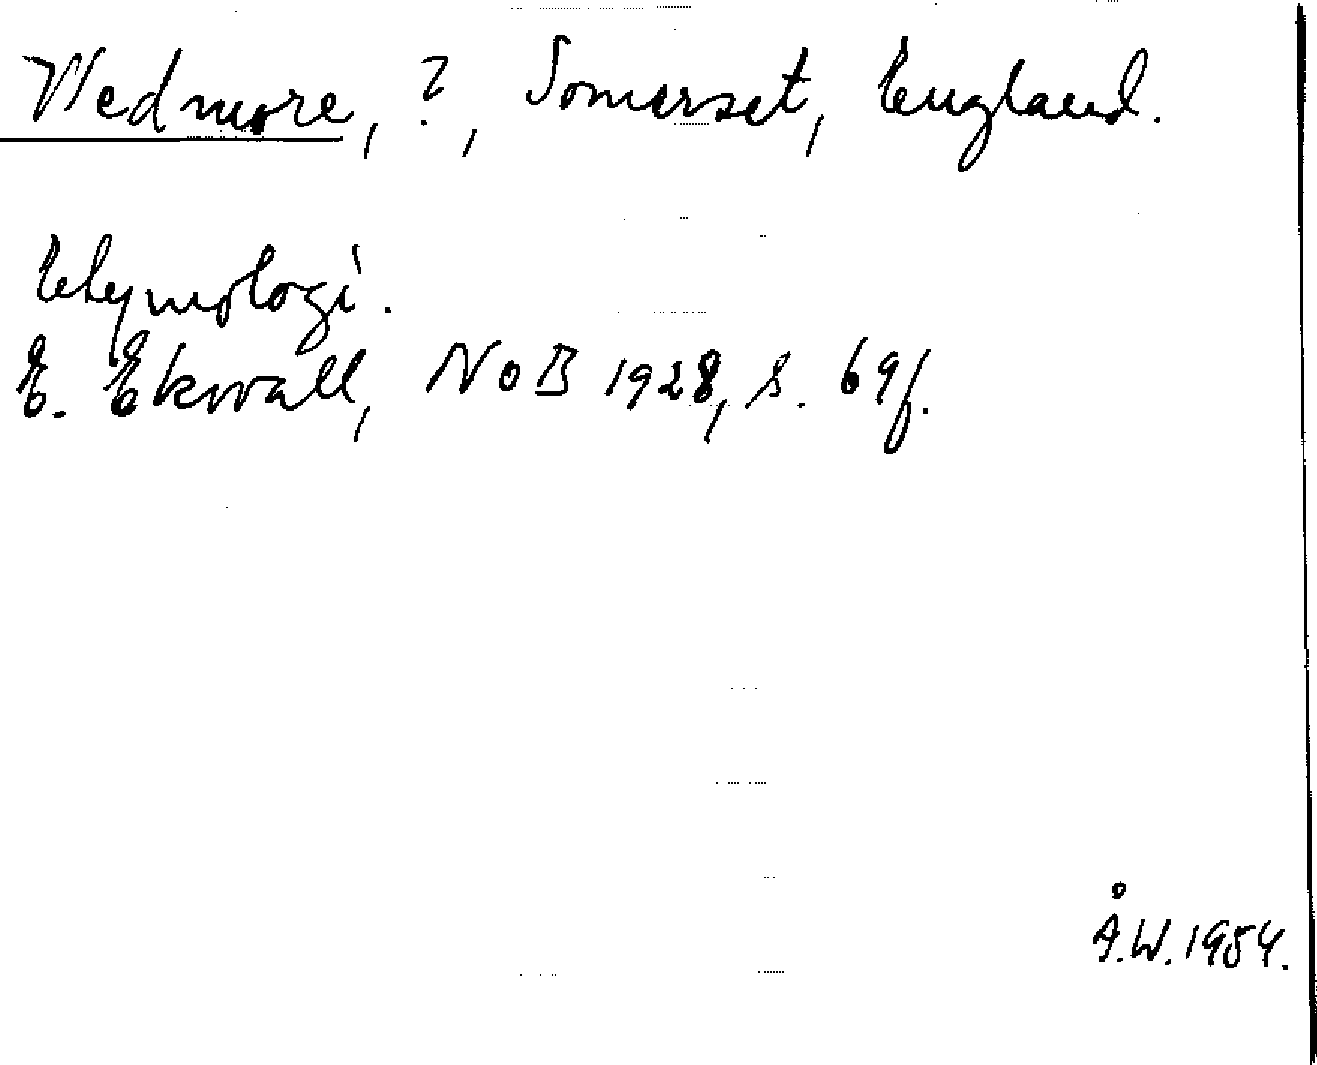 Wedmore, ?, Somerset, England.
Etymologi.
E. Ekwall, NoB 1928, s. 69f.
Å.W. 1954.